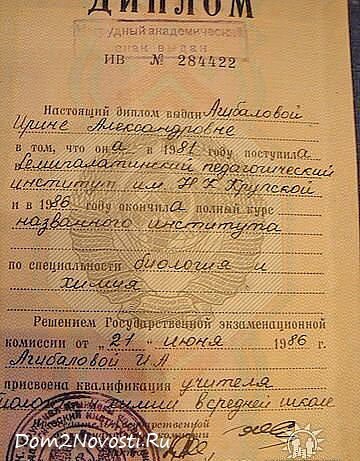 ДИПЛОМ
Нагрудный академический
знак выдан
ИВ № 284422
Настоящий диплом выдан Агибаловой
Ирине Александровне
в том, что она в 1981 году поступила
в Семипалатинский педагогический
институт им. Н К Крупской
и в 1986 году окончила полный курс
названного института
по специальности биология и
химия
Решением Государственной экзаменационной
комиссии от „21" июня 1986 г.
Агибаловой И А
присвоена квалификация учителя
биологии химии в средней школе
Dom2Novosti.Ru